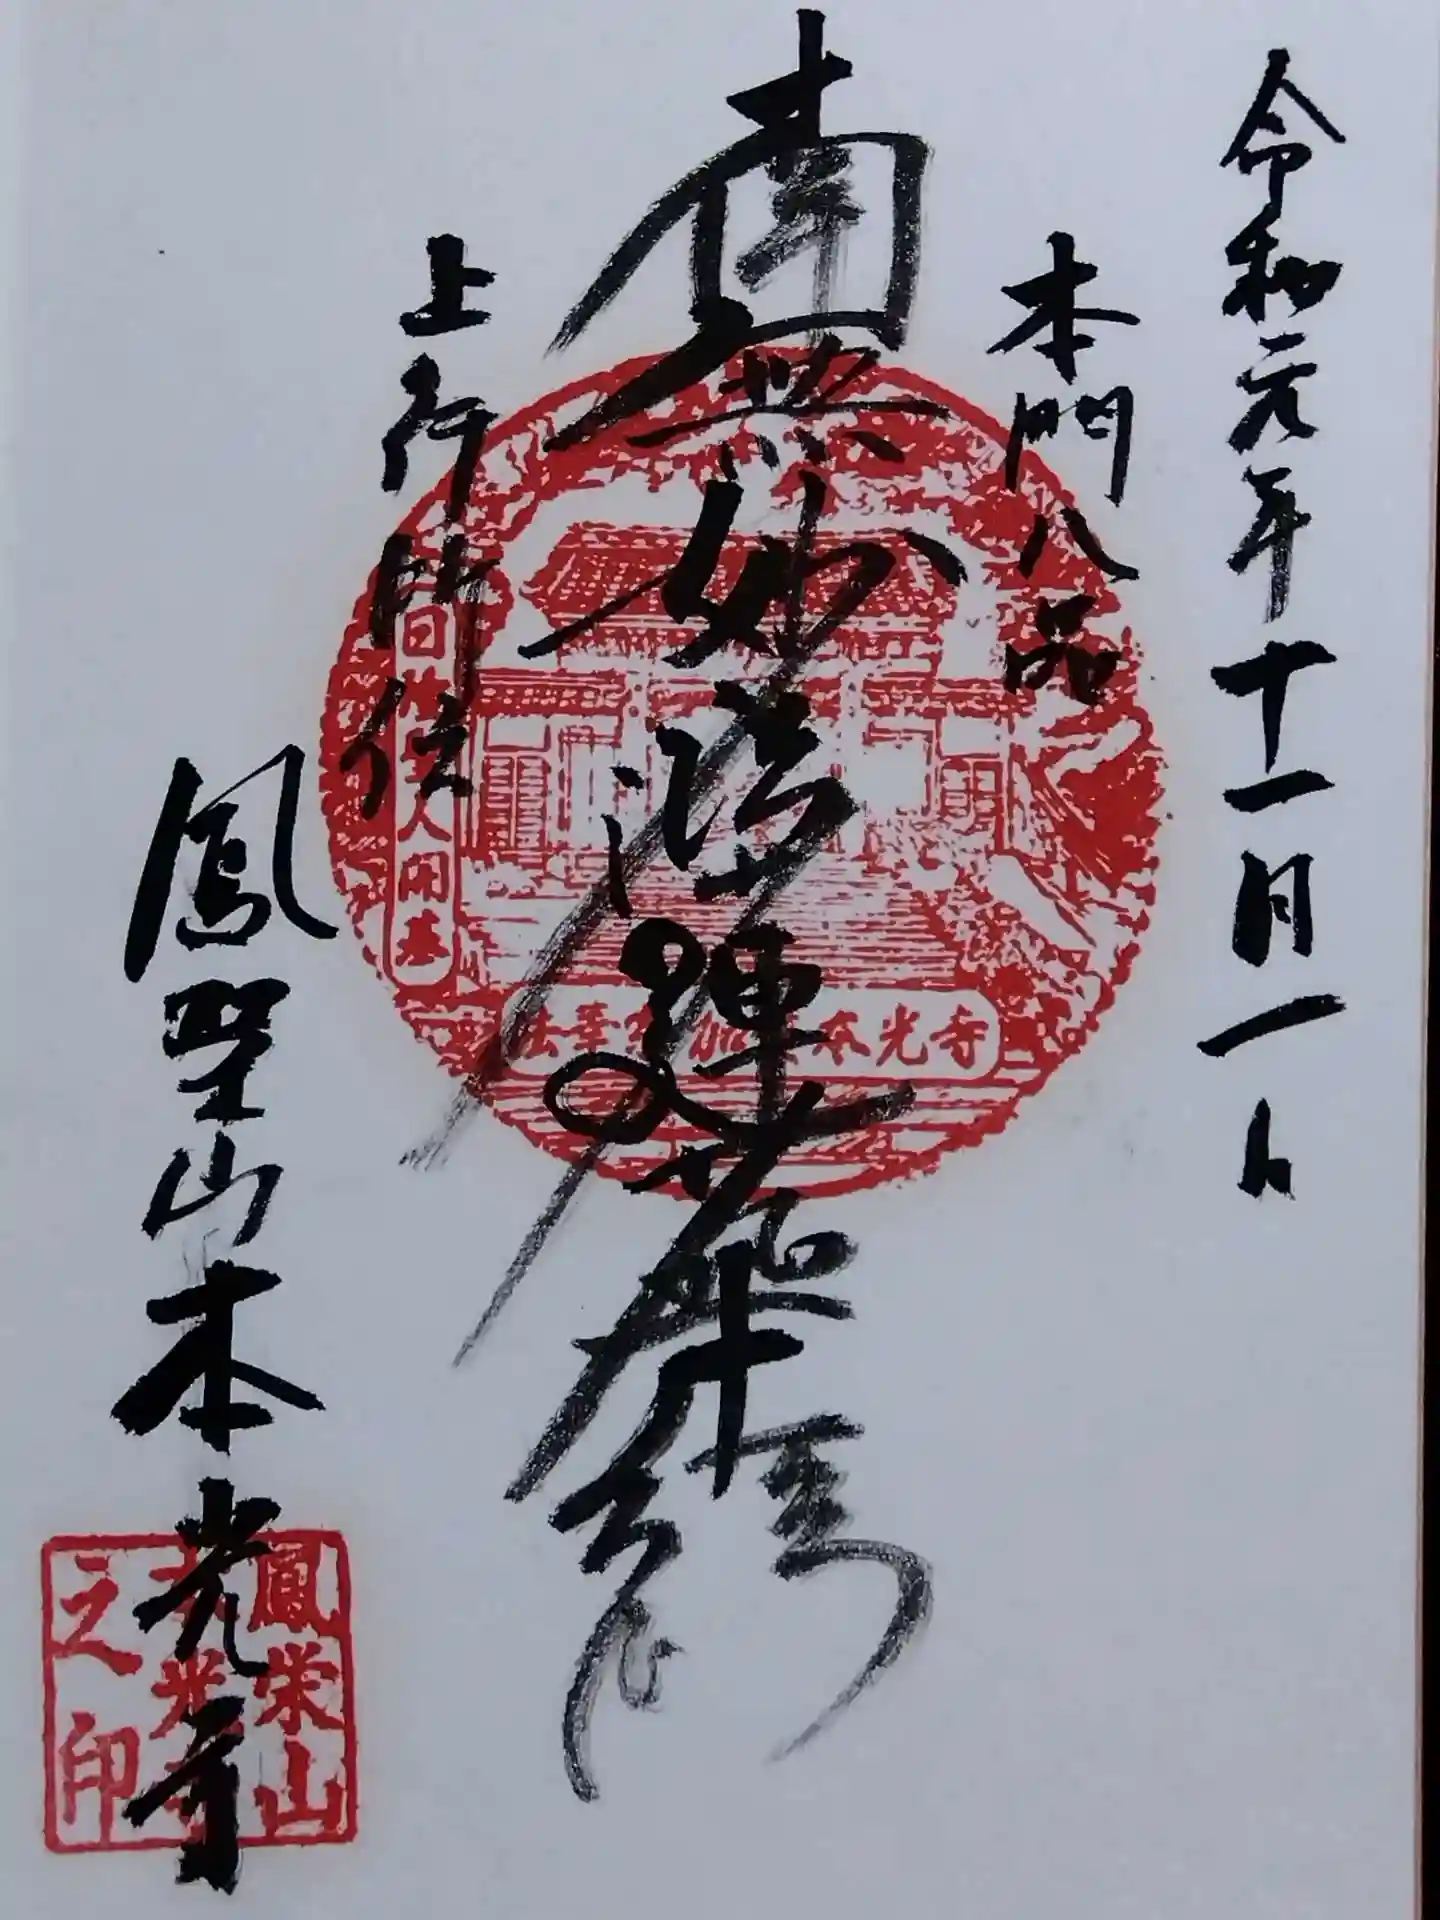 令和元年十一月一日
本門八品
南無妙法蓮華經
上行所伝
鳳榮山本光寺
人開基
法華宗
本光寺
鳳栄山
本光寺
之印